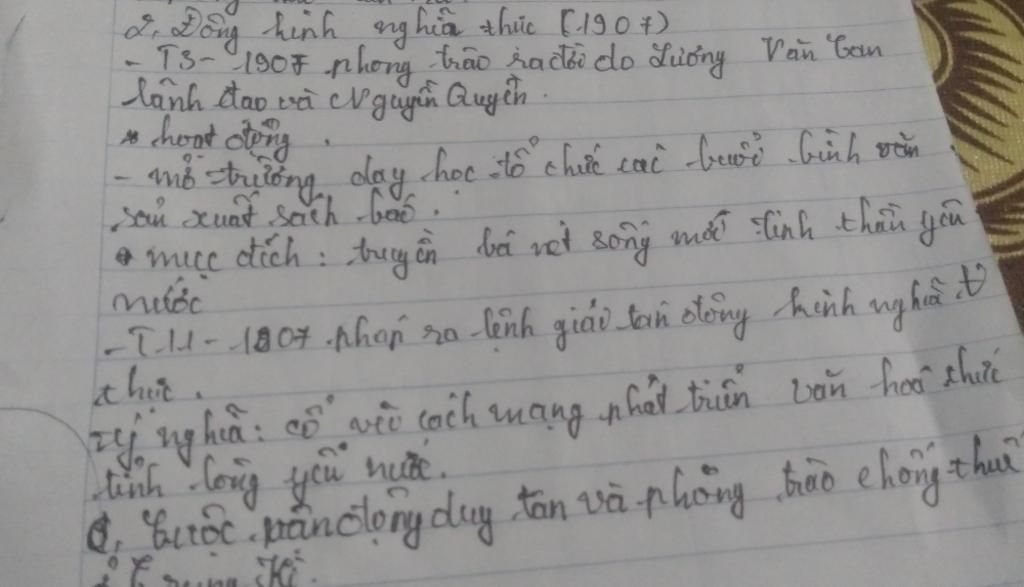 2, Đông kinh nghĩa thục (1907)
- T3 - 1907 phong trào ra đời do Lương Văn Can
lãnh đạo và Nguyễn Quyền.
* hoạt động.
- mở trường dạy học tổ chức các buổi bình văn
sản xuất sách báo.
* mục đích: truyền bá nét sống mới tinh thần yêu
nước
- T11 - 1907 pháp ra lệnh giải tán đông kinh nghĩa
thục.
ý nghĩa: cổ vũ cách mạng phát triển văn hoá thức
tỉnh lòng yêu nước.
Cuộc vận động duy tân và phong trào chống thuế
ở Trung Kì.